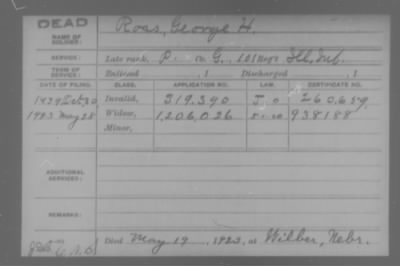 DEAD
NAME OF SOLDIER: Ross, George H.
SERVICE: Late rank, P Co. G., 101 Reg't Ill. Inf.
TERM OF SERVICE: Enlisted , 1 Discharged , 1
DATE OF FILING. CLASS. APPLICATION NO. LAW. CERTIFICATE NO.
Oct 20 Invalid, 319.390 260.659
1923 May 28 Widow, 1,206,026 938188
Minor,
ADDITIONAL SERVICES:
REMARKS:
Died May 19, 1923, at Wilber, Nebr.